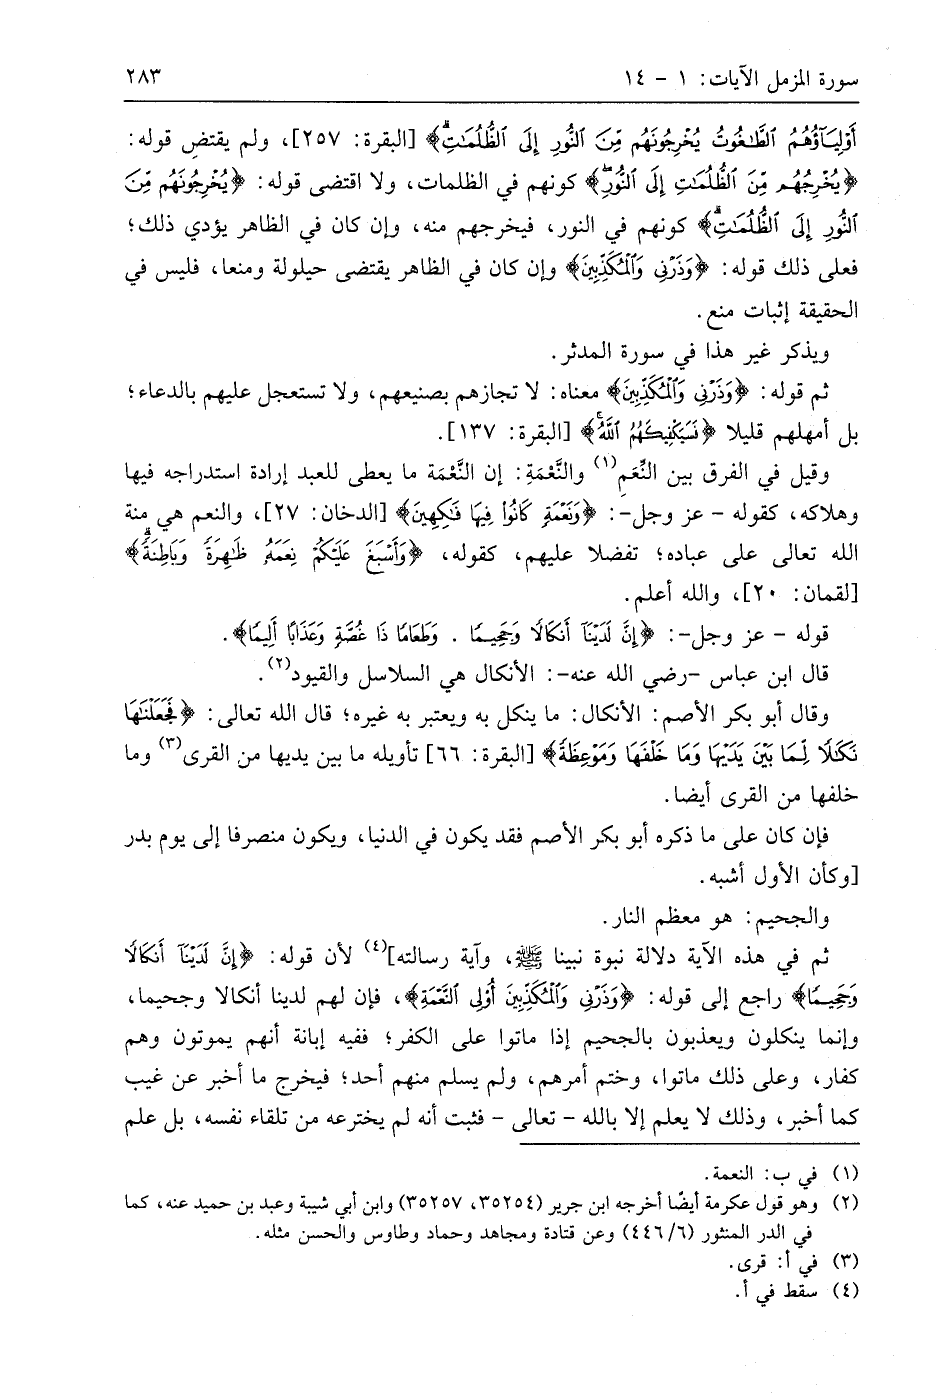 سورة المزمل الآيات: ١ - ١٤ ٢٨٣
أَوْلِيَآؤُهُمُ ٱلطَّٰغُوتُ يُخْرِجُونَهُم مِّنَ ٱلنُّورِ إِلَى ٱلظُّلُمَٰتِۗ﴾ [البقرة: ٢٥٧]، ولم يقتضِ قوله:
﴿يُخْرِجُهُم مِّنَ ٱلظُّلُمَٰتِ إِلَى ٱلنُّورِۖ﴾ كونهم في الظلمات، ولا اقتضى قوله: ﴿يُخْرِجُونَهُم مِّنَ
ٱلنُّورِ إِلَى ٱلظُّلُمَٰتِۗ﴾ كونهم في النور، فيخرجهم منه، وإن كان في الظاهر يؤدي ذلك؛
فعلى ذلك قوله: ﴿وَذَرْنِي وَٱلْمُكَذِّبِينَ﴾ وإن كان في الظاهر يقتضى حيلولة ومنعا، فليس في
الحقيقة إثبات منع.
ويذكر غير هذا في سورة المدثر.
ثم قوله: ﴿وَذَرْنِي وَٱلْمُكَذِّبِينَ﴾ معناه: لا تجازهم بصنيعهم، ولا تستعجل عليهم بالدعاء؛
بل أمهلهم قليلا ﴿فَسَيَكْفِيكَهُمُ ٱللَّهُۚ﴾ [البقرة: ١٣٧].
وقيل في الفرق بين النِّعَمِ(١) والنَّعْمَةِ: إن النَّعْمَة ما يعطى للعبد إرادة استدراجه فيها
وهلاكه، كقوله - عز وجل-: ﴿وَنَعْمَةٍ كَانُوا۟ فِيهَا فَٰكِهِينَ﴾ [الدخان: ٢٧]، والنعم هي منة
الله تعالى على عباده؛ تفضلا عليهم، كقوله، ﴿وَأَسْبَغَ عَلَيْكُمْ نِعَمَهُۥ ظَٰهِرَةً وَبَاطِنَةًۗ﴾
[لقمان: ٢٠]، والله أعلم.
قوله - عز وجل-: ﴿إِنَّ لَدَيْنَآ أَنكَالًا وَجَحِيمًا . وَطَعَامًا ذَا غُصَّةٍ وَعَذَابًا أَلِيمًا﴾.
قال ابن عباس -رضي الله عنه-: الأنكال هي السلاسل والقيود(٢).
وقال أبو بكر الأصم: الأنكال: ما ينكل به ويعتبر به غيره؛ قال الله تعالى: ﴿فَجَعَلْنَٰهَا
نَكَٰلًا لِّمَا بَيْنَ يَدَيْهَا وَمَا خَلْفَهَا وَمَوْعِظَةً﴾ [البقرة: ٦٦] تأويله ما بين يديها من القرى(٣) وما
خلفها من القرى أيضا.
فإن كان على ما ذكره أبو بكر الأصم فقد يكون في الدنيا، ويكون منصرفا إلى يوم بدر
[وكأن الأول أشبه.
والجحيم: هو معظم النار.
ثم في هذه الآية دلالة نبوة نبينا ﷺ، وآية رسالته](٤) لأن قوله: ﴿إِنَّ لَدَيْنَآ أَنكَالًا
وَجَحِيمًا﴾ راجع إلى قوله: ﴿وَذَرْنِي وَٱلْمُكَذِّبِينَ أُو۟لِي ٱلنَّعْمَةِ﴾، فإن لهم لدينا أنكالا وجحيما،
وإنما ينكلون ويعذبون بالجحيم إذا ماتوا على الكفر؛ ففيه إبانة أنهم يموتون وهم
كفار، وعلى ذلك ماتوا، وختم أمرهم، ولم يسلم منهم أحد؛ فيخرج ما أخبر عن غيب
كما أخبر، وذلك لا يعلم إلا بالله - تعالى - فثبت أنه لم يخترعه من تلقاء نفسه، بل علم
(١) في ب: النعمة.
(٢) وهو قول عكرمة أيضًا أخرجه ابن جرير (٣٥٢٥٤، ٣٥٢٥٧) وابن أبي شيبة وعبد بن حميد عنه، كما
في الدر المنثور (٤٤٦/٦) وعن قتادة ومجاهد وحماد وطاوس والحسن مثله.
(٣) في أ: قرى.
(٤) سقط في أ.